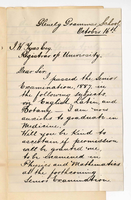 Glenelg Grammar School
October 16th
Registrar of University.
Dear Sir,
I passed the Senior
Examination, 1887 in
the following subjects
viz English, Latin, and
Botany. I am now
anxious to graduate in
Medicine.
Will you be kind to
ascertain if permission
will be granted me,
to be examined in
Physics and Mathematics
at the forthcoming
Senior Examination